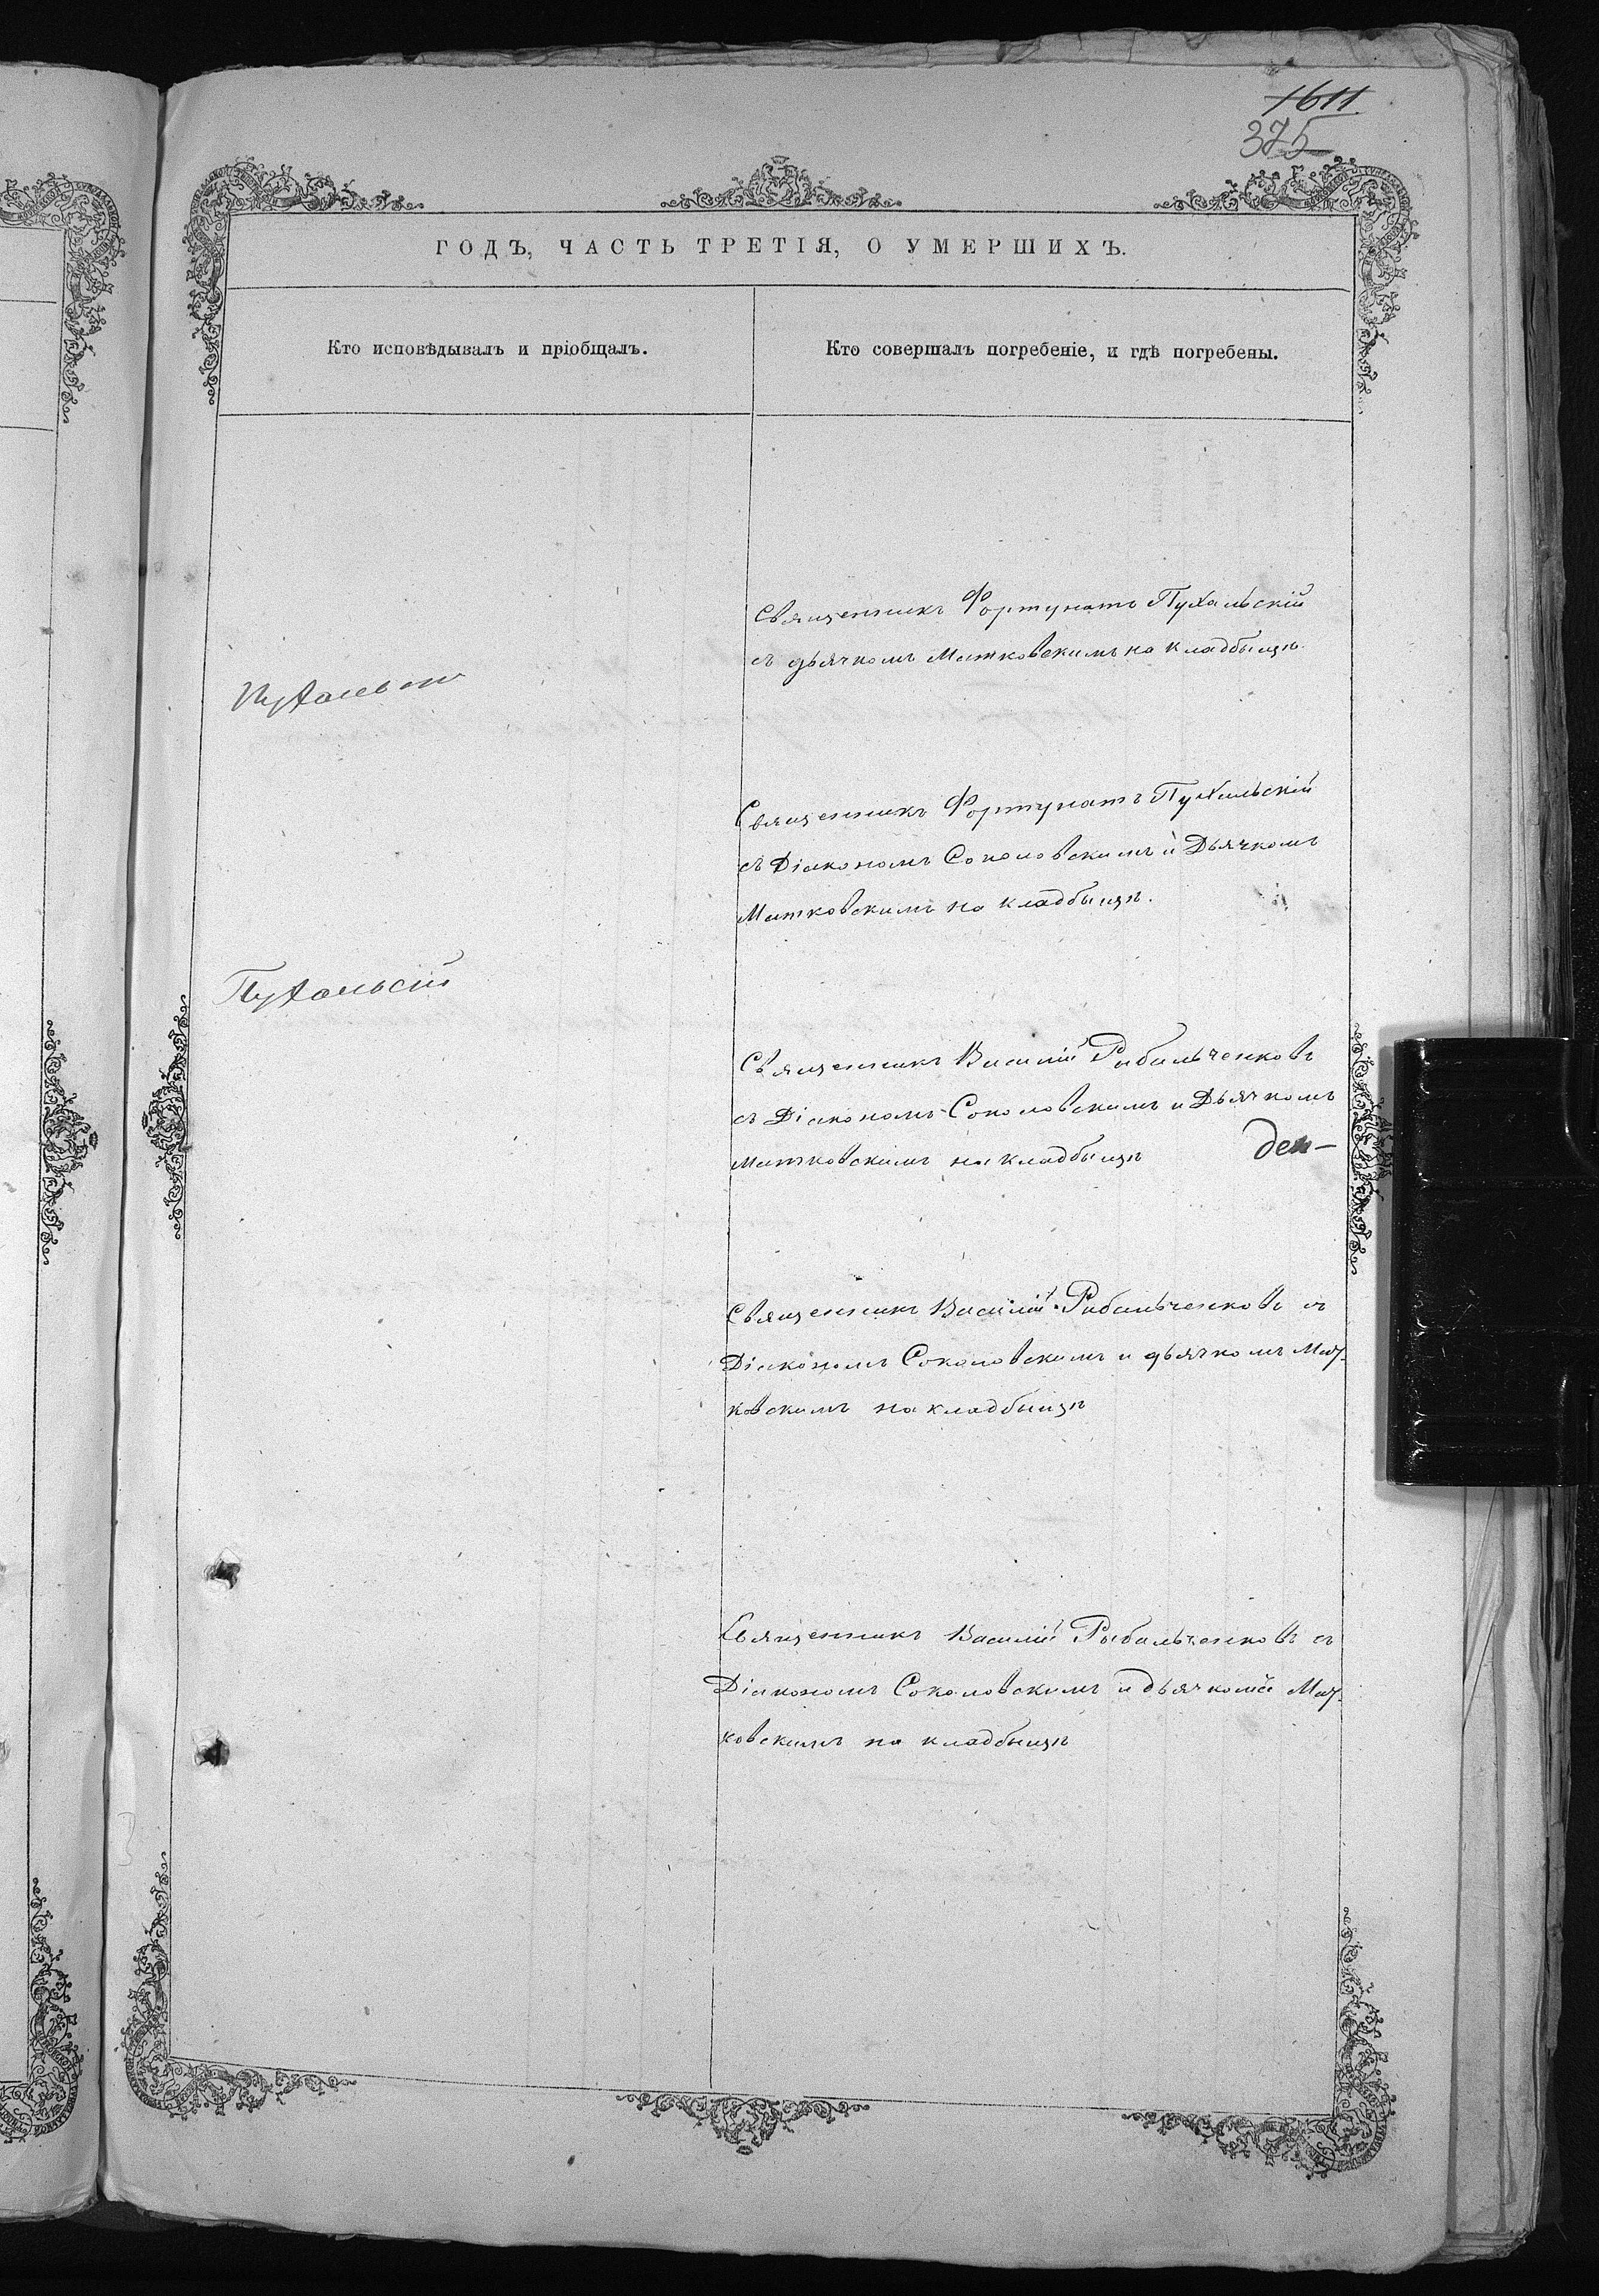 1611
375
ГОДЪ, ЧАСТЬ ТРЕТІЯ, О УМЕРШИХЪ.
Кто исповѣдывалъ и пріобщалъ.
Кто совершалъ погребеніе, и гдѣ погребены.
Священникъ Фортунатъ Пухальскій
съ дьячкомъ Матковскимъ на кладбищѣ.
Пухальскій
Священникъ Фортунатъ Пухальскій
съ Діакономъ Соколовскимъ и Дьячкомъ
Матковскимъ на кладбищѣ.
Пухальскій
Священникъ Василій Рыбальченковъ
съ Діакономъ Соколовскимъ и Дьячкомъ
Матковскимъ на кладбищѣ
Священникъ Василій Рыбальченковъ съ
Діакономъ Соколовскимъ и дьячкомъ Мат-
ковскимъ на кладбищѣ
Священникъ Василій Рыбальченковъ съ
Діакономъ Соколовскимъ и дьячкомъ Мат-
ковскимъ на кладбищѣ